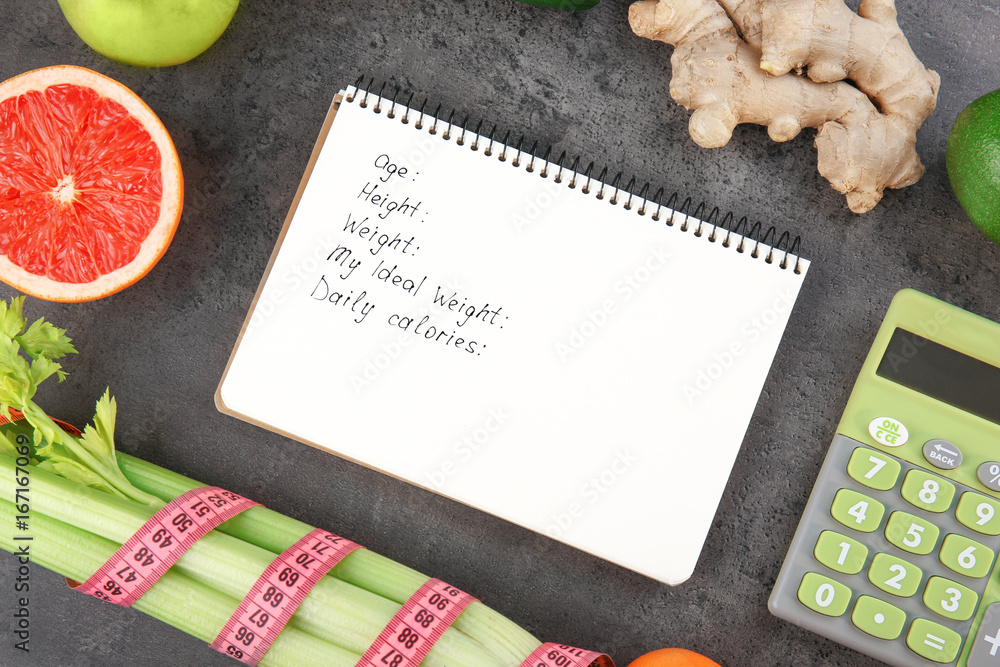 Age:
Height:
Weight:
My Ideal Weight:
Daily calories:
ON
C CE
BACK
%
7
8
9
4
5
6
1
2
3
0
.
=
+
46 47 48 49 50 51 52 53
66 67 68 69 70 71
87 88 89 90
109
Adobe Stock | #167167069